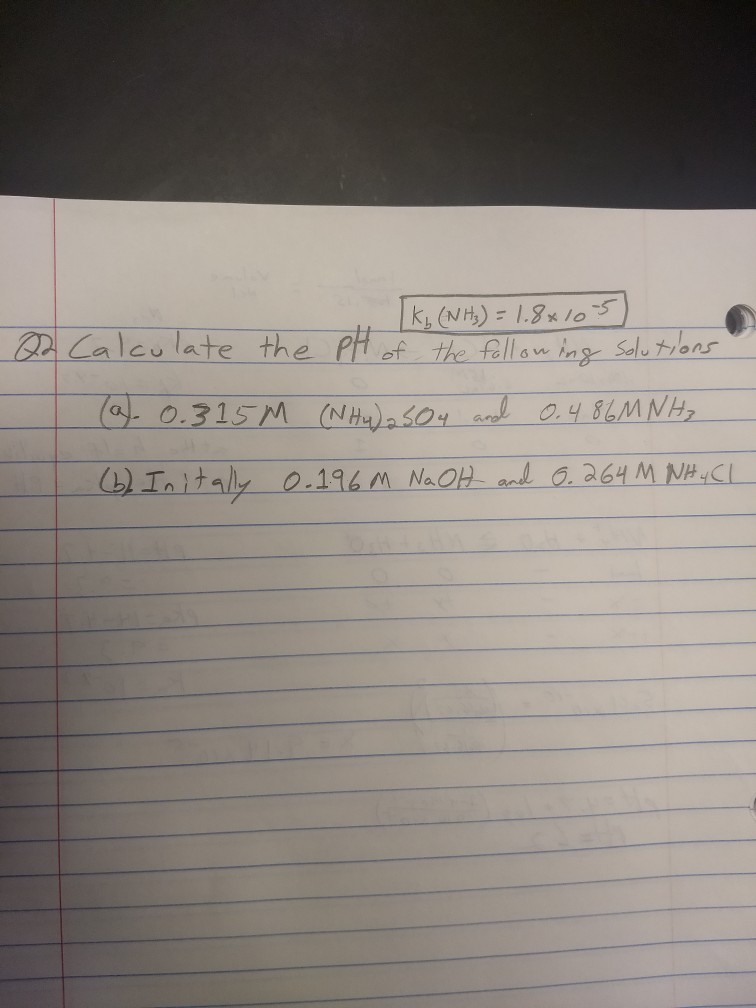 K_b (NH₃) = 1.8 x 10⁻⁵
Q2 Calculate the pH of the following Solutions
(a). 0.315M (NH₄)₂SO₄ and 0.486M NH₃
(b) Initally 0.196 M NaOH and 0.264 M NH₄Cl